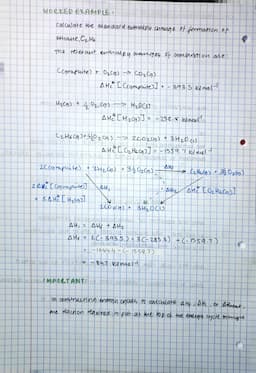 WORKED EXAMPLE -
calculate the standard enthalpy change of formation of
ethane, C2H6
The relevant enthalpy changes of combustion are
C(graphite) + O2(g) → CO2(g)
ΔHc° [C(graphite)] = -393.5 kJmol-1
H2(g) + ½O2(g) → H2O(l)
ΔHc° [H2(g)] = kJmol-1
C2H6(g) + 3½O2(g) → 2CO2(g) + 3H2O(l)
ΔHc° [C2H6(g)] = -1559.7 kJmol-1
2C(graphite) + 3H2(g) + 3½O2(g) → C2H6(g) + 3½O2(g)
2ΔHc° [C(graphite)] ΔH1 ΔH2 ΔHc° [C2H6(g)]
+ 3ΔHc° [H2(g)]
2CO2(g) + 3H2O(l)
ΔH1 = ΔHf + ΔH2
ΔHf = 2(-393.5) + 3(-285.8) - (-1559.7)
= - (-1559.7)
= kJmol-1
IMPORTANT:
in constructing an energy cycle to calculate
the reaction is put at the top of the energy cycle